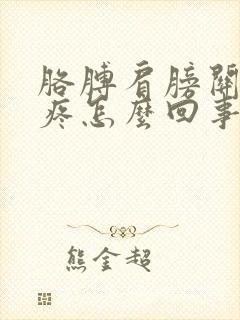 胳膊肩膀關
疼怎麼回事
熊金超